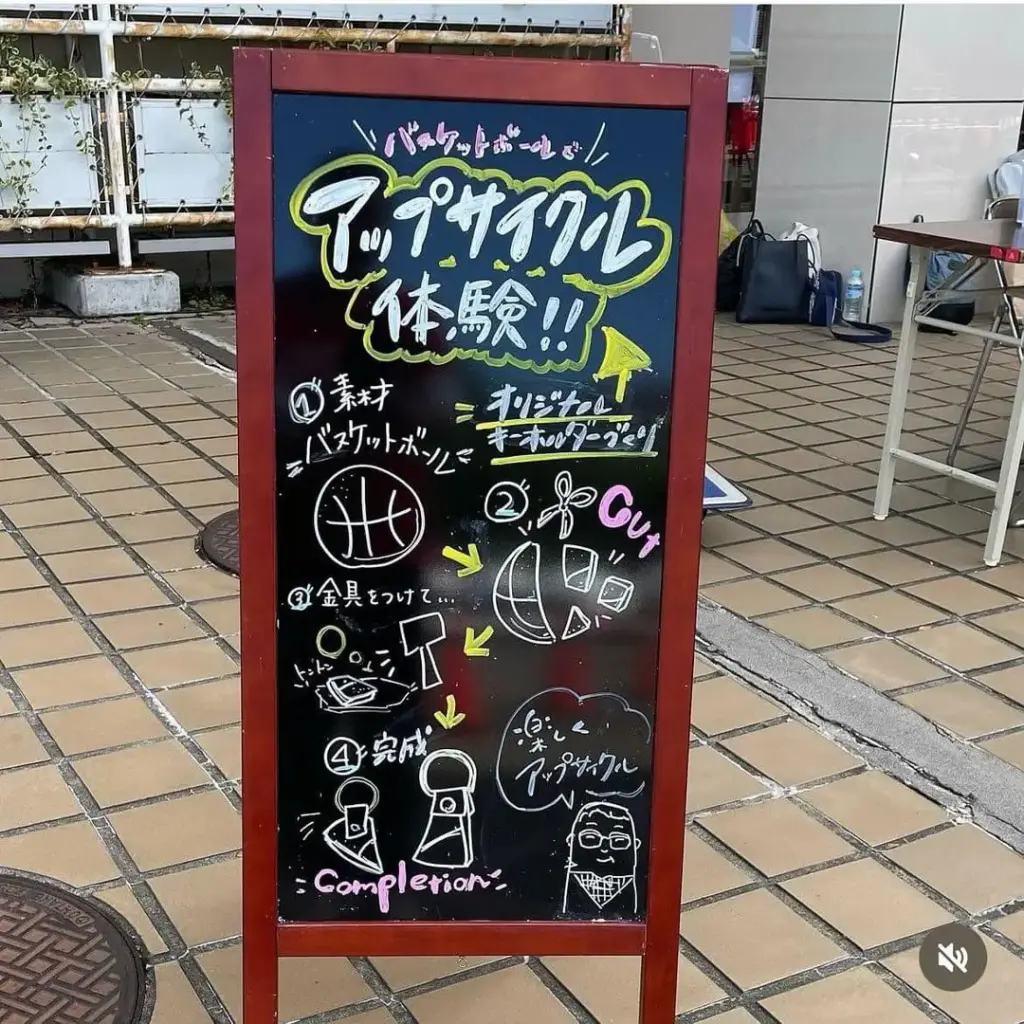 バスケットボールで
アップサイクル
体験!!
オリジナル
キーホルダーづくり
① 素材
バスケットボール
② Cut
③ 金具をつけて...
トントン
④ 完成
Completion
楽しく
アップサイクル